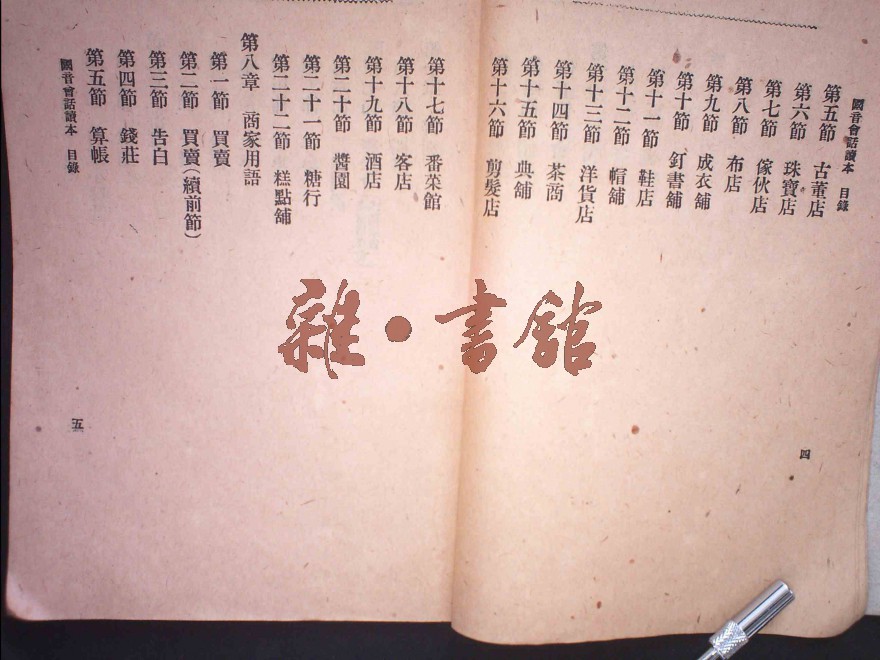 國音會話讀本 目錄
第五節 古董店
第六節 珠寶店
第七節 傢伙店
第八節 布店
第九節 成衣舖
第十節 釘書舖
第十一節 鞋店
第十二節 帽舖
第十三節 洋貨店
第十四節 茶商
第十五節 典舖
第十六節 剪髮店
四
第十七節 番菜館
第十八節 客店
第十九節 酒店
第二十節 醬園
第二十一節 糖行
第二十二節 糕點舖
第八章 商家用語
第一節 買賣
第二節 買賣(續前節)
第三節 告白
第四節 錢莊
第五節 算帳
國音會話讀本 目錄
五
雜•書館